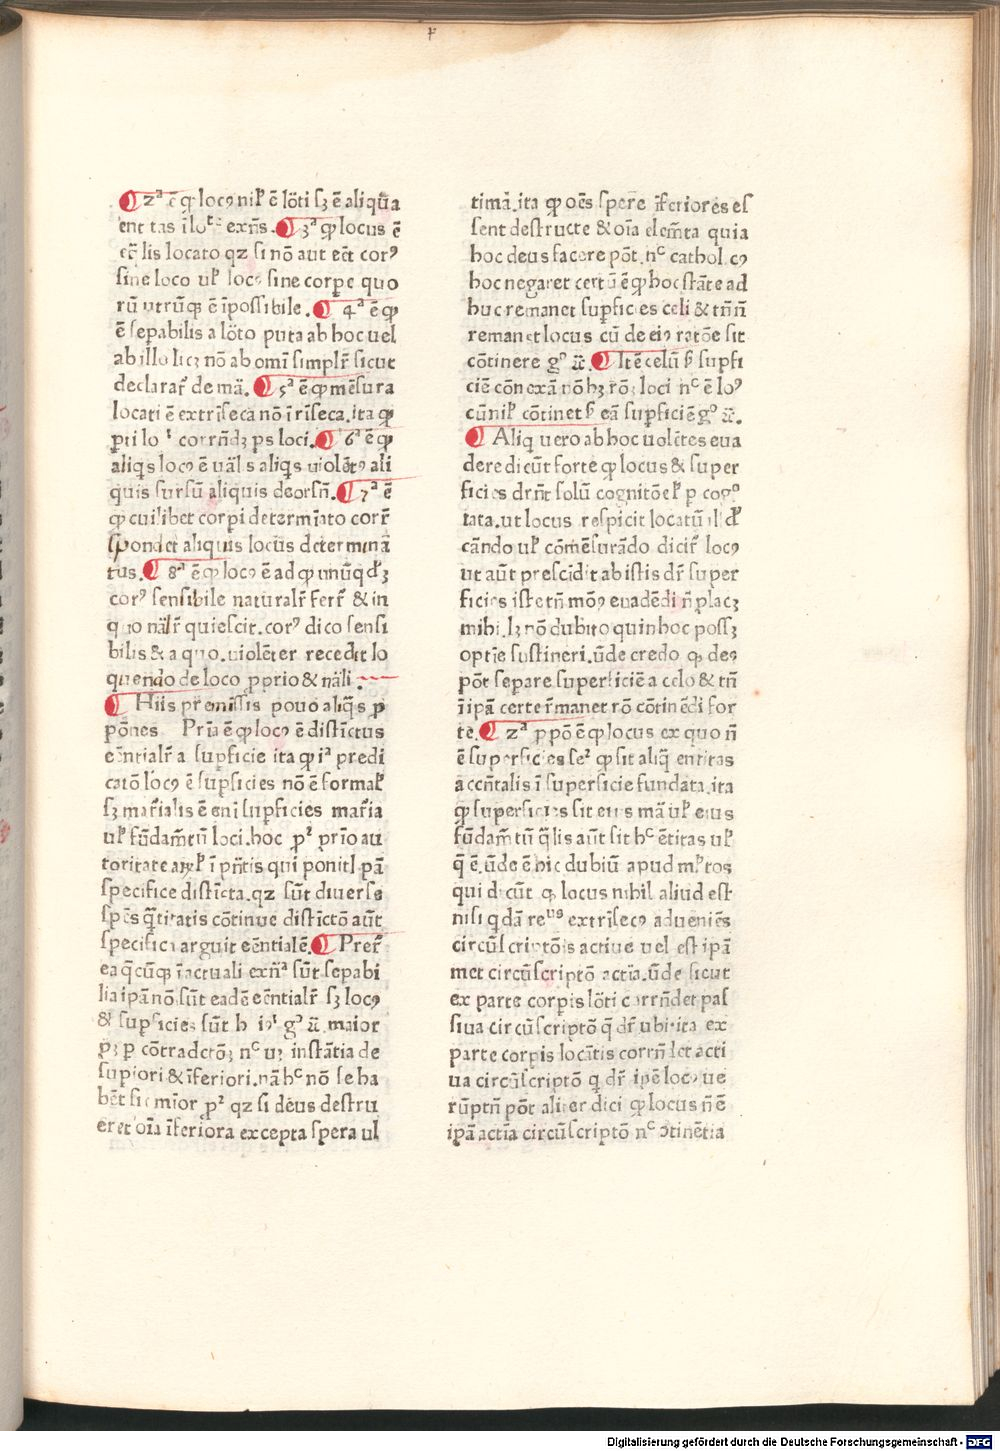 2ª ē ꝙ locꝰ nil̕ ē lōti sꝫ ē aliqua
entitas ī exn̄s. 3ª ꝙ locus ē
lis locato qz si nō aut eēt corꝰ
sine loco ul̕ locꝰ sine corpe quo
rū utrūqꝫ ē īpossibile. 4ª ē ꝙ
ē sepabilis a lōto puta ab hoc uel
ab illo licꝫ nō ab omī simplr̄ sicut
declarar̄ de mā. 5ª ē ꝙ mēsura
locati ē extrīseca nō ītrīseca. ita ꝙ
pti lo corrn̄dꝫ ps loci. 6ª ē ꝙ
aliqͥs locꝰ ē aliqͥs uiolētꝰ ali
quis sursū aliquis deorsū. 7ª ē
ꝙ cuilibet corpi determīato corr̄
spondet aliquis locus determinā
tus. 8ª ē ꝙ locꝰ ē ad ꝙ unūqdꝫ
corꝰ sensibile naturalr̄ ferr̄ & in
quo nālr̄ quiescit. corꝰ dico sensi
bilis & a quo uiolēter recedit lo
quendo de loco pprio & nāli.
Hiis pr̄emissis pono aliqͥs p
pōnes Pria ē ꝙ locꝰ ē distīctus
eēntialr̄ a supficie ita ꝙ iª predi
catō locꝰ ē supficies nō ē formal̕
sꝫ mar̄ialis ē eni supficies mar̄ia
ul̕ fūdamtū loci. hoc pꝫ prīo au
toritate ī pn̄tis qui ponit pā
specifice distīcta. qz sūt diuerse
spēs qtitatis cōtinue distīctō aūt
specifica arguit eēntialē. Preꝭ
ea qcūqꝫ ī actuali exn̄ª sūt sepabi
lia ipā nō sūt eadē eēntialr̄ sꝫ locꝰ
& supficies sūt gº maior
pꝫ p cōtradctō nᶜ instātia de
supiori & īferiori. nā hᶜ nō se ha
bēt sic mīor pꝫ qz si deus destru
eret oīa īferiora excepta spera ul
timā. ita ꝙ oēs spere īferiores es
sent destructe & oīa elem̄ta quia
hoc deus facere pōt. nᶜ catholicꝰ
hoc negaret certū ē ꝙ hoc stāte ad
huc remanet supficies celi & tn̄
remanet locus cū de eiꝰ ratōe sit
cōtinere gº Itē celū supfi
ciē cōnexā nō hꝫ rō loci nᶜ ē loꝰ
cū nil̕ cōtinet eā supficiē gº
Aliqͥ uero ab hoc uolētes eua
dere dicūt forte ꝙ locus & super
ficies drn̄t solū cognitōe p cogº
tata. ut locus respicit locatū
cādo ul̕ cōmēsurādo dicit̄ locꝰ
ut aūt prescīdit ab istis dr̄ super
ficies iste tn̄ modꝰ euadēdi n̄ placꝫ
mihi lꝫ nō dubito quin hoc possꝫ
optie sustineri. ūde credo ꝙ deꝰ
pōt separe superficiē a celo & tn̄
ī ipā certe r̄manet rō cōtinēdi for
te. 2ª ppō ē ꝙ locus ex quo n̄
ē superficies seꝫ ꝙ sit aliqͣ entitas
accn̄talis ī superficie fundata. ita
ꝙ superficies sit eius mā ul̕ eius
fūdam̄tū qlis aūt sit hᶜ ētitas ul̕
q ē. ūde ē hic dubiū apud ml̕tos
qui dicūt ꝙ locus nihil aliud est
nisi qdā reᵘˢ extrīsecꝰ adueniēs
circūscriptōis actiue uel est ipā
met circūscriptō actīa. ūde sicut
ex parte corpis lōti corrn̄det pas
siua circūscriptō q dr̄ ubi. ita ex
parte corpis locātis corrn̄det acti
ua circūscriptō q dr̄ ipē locꝰ ue
rūptn̄ pōt aliter dici ꝙ locus n̄ ē
ipā actīa circūscriptō nᶜ ꝯtinētia
Digitalisierung gefördert durch die Deutsche Forschungsgemeinschaft - DFG